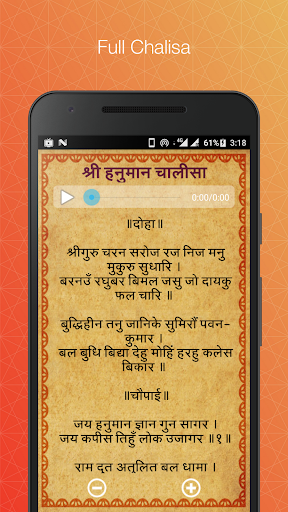 Full Chalisa
3:18
श्री हनुमान चालीसा
0:00/0:00
॥दोहा॥
श्रीगुरु चरन सरोज रज निज मनु
मुकुरु सुधारि ।
बरनउँ रघुबर बिमल जसु जो दायकु
फल चारि ॥
बुद्धिहीन तनु जानिके सुमिरौं पवन-
कुमार ।
बल बुधि बिद्या देहु मोहिं हरहु कलेस
बिकार ॥
॥चौपाई॥
जय हनुमान ज्ञान गुन सागर ।
जय कपीस तिहुँ लोक उजागर ॥१॥
राम दूत अतुलित बल धामा ।